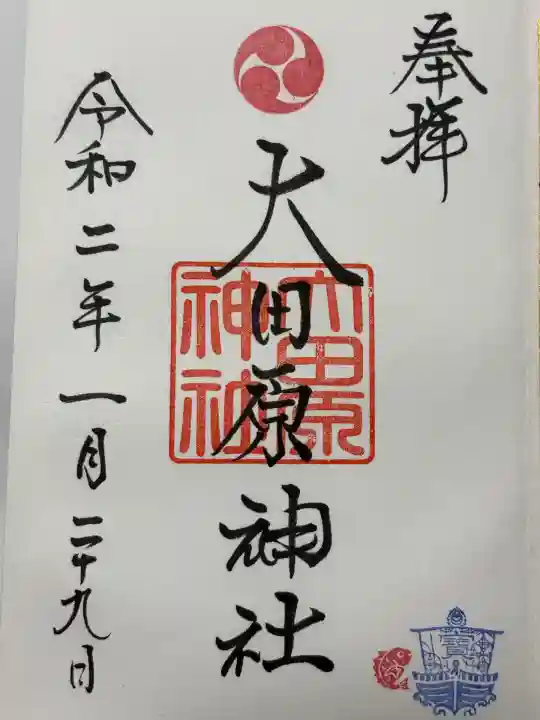 奉拝
大田原神社
大田原
神社
令和二年一月二十九日
寳